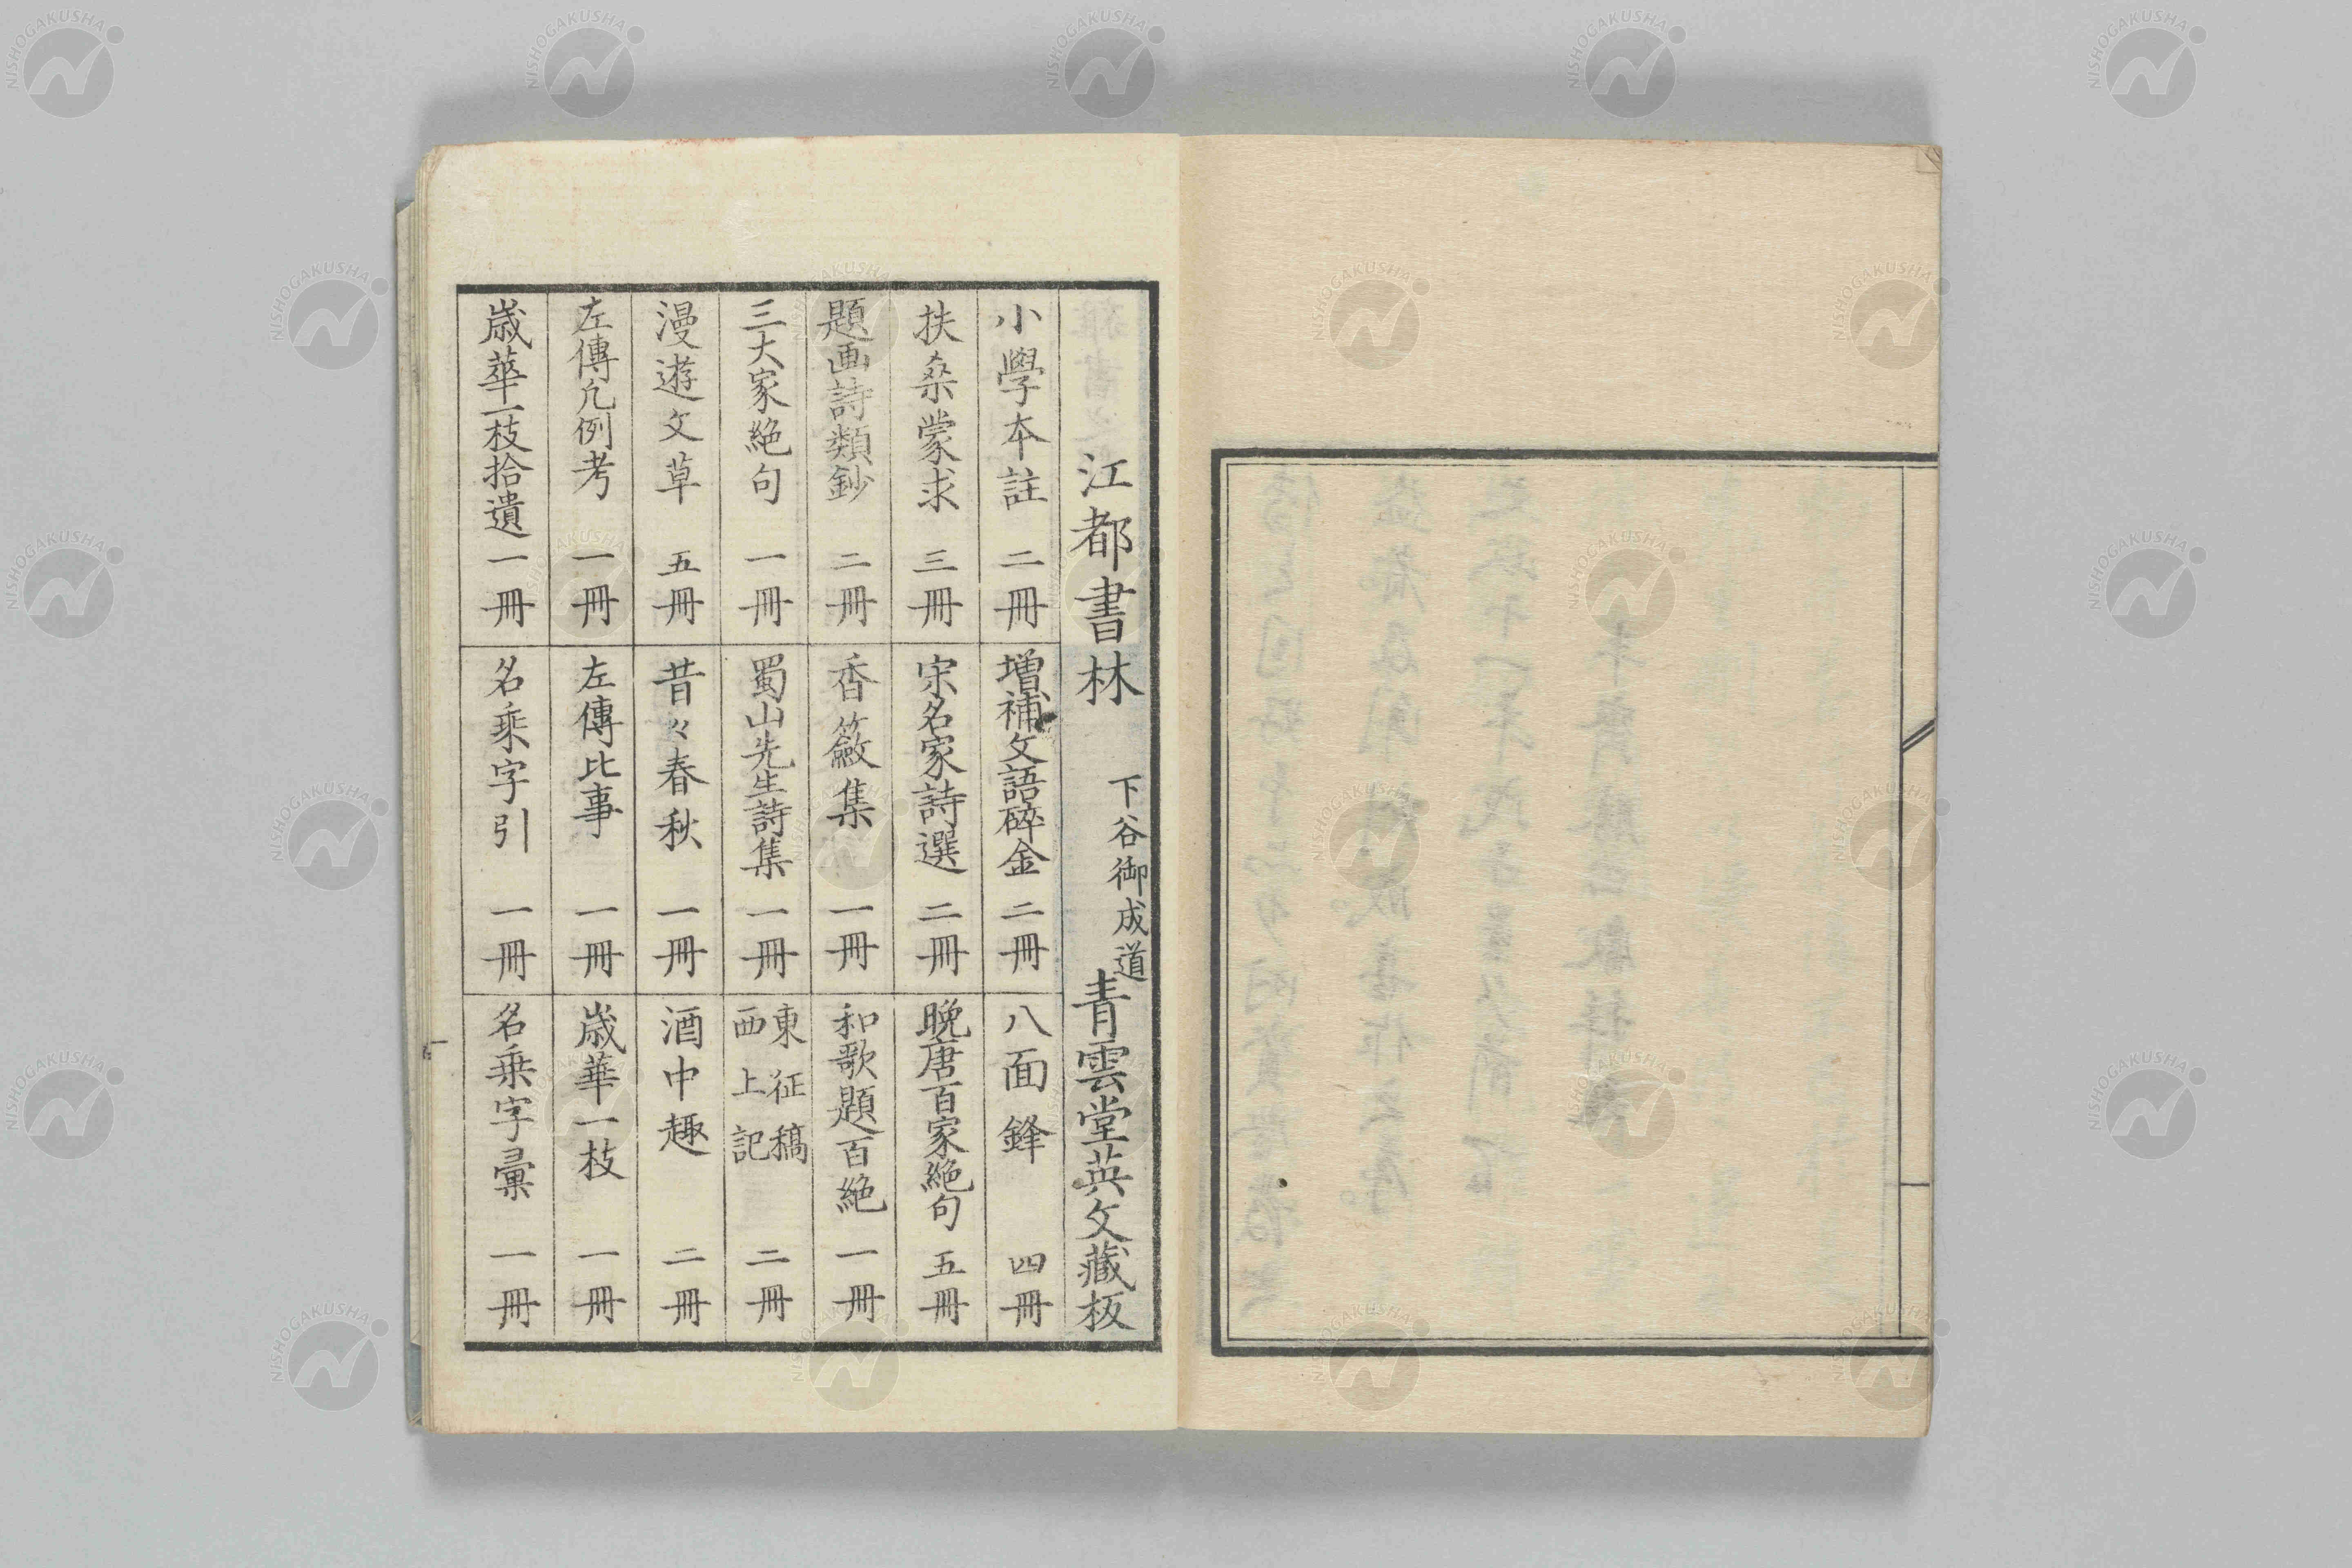 江都書林 下谷御成道 青雲堂英文藏板
小學本註 二冊
増補文語碎金 二冊
八面鋒 四冊
扶桑蒙求 三冊
宋名家詩選 二冊
晩唐百家絶句 五冊
題画詩類鈔 二冊
香籢集 一冊
和歌題百絶 一冊
三大家絶句 一冊
蜀山先生詩集 一冊
東征稿
西上記 二冊
漫遊文草 五冊
昔々春秋 一冊
酒中趣 二冊
左傳凡例考 一冊
左傳比事 一冊
歳華一枝 一冊
歳華一枝拾遺 一冊
名乗字引 一冊
名乗字彙 一冊
NISHOGAKUSHA